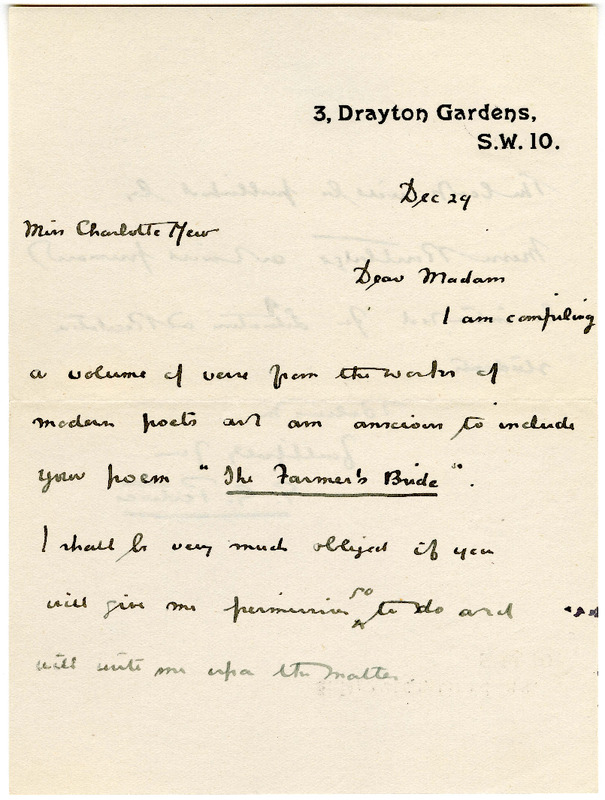 3, Drayton Gardens,
S.W. 10.
Dec 29
Miss Charlotte Mew
Dear Madam
I am compiling
a volume of verse from the works of
modern poets and am anxious to include
your poem "The Farmer's Bride".
I shall be very much obliged if you
will give me permission so to do and
will write me upon the matter.